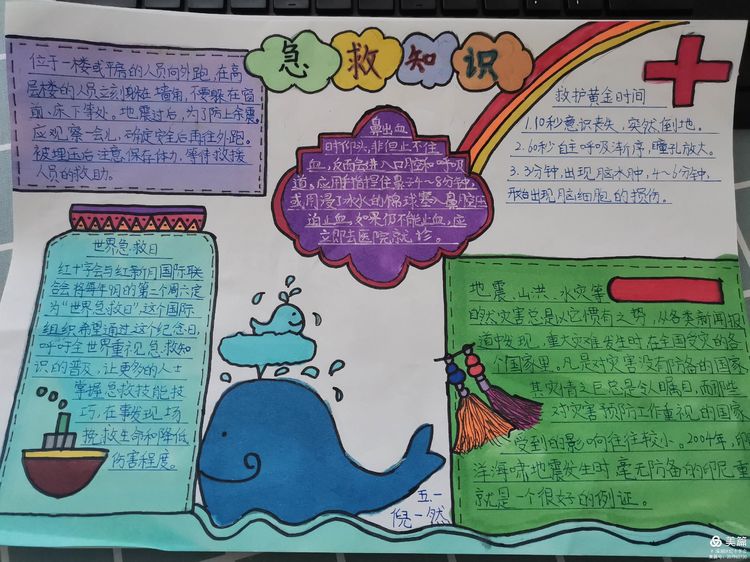 急救知识
位于一楼或平房的人员向外跑，在高
层楼的人员立刻躲在墙角，不要躲在窗
前、床下等处。地震过后，为了防止余震，
应观察一会儿，确定安全后再往外跑。
被埋压后注意保存体力，等待救援
人员的救助。
鼻出血
时仰头，非但止不住
血，反而会进入口腔和呼吸
道。应用手指捏住鼻子4～8分钟，
或用浸了冰水的棉球塞入鼻腔压
迫止血，如果仍不能止血，应
立即去医院就诊。
救护黄金时间
1.10秒意识丧失，突然倒地。
2.60秒自主呼吸渐停，瞳孔放大。
3.3分钟，出现脑水肿，4～6分钟，
出现脑细胞的损伤。
世界急救日
红十字会与红新月国际联
合会将每年9月的第二个周六定
为“世界急救日”，这个国际
组织希望通过这个纪念日，
呼吁全世界重视急救知
识的普及，让更多的人士
掌握急救技能技
巧，在事发现场
挽救生命和降低
伤害程度。
地震、山洪、水灾等
的大灾害总是以它惯有之势，从各类新闻报
道中发现，重大灾难发生时在全国受灾的各
个国家里。凡是对灾害没有防备的国家
其灾情之巨总是令人瞩目，而那些
对灾害预防工作重视的国家
受到的影响往往较小。2004年，印
洋海啸地震发生时毫无防备的印尼重
就是一个很好的例证。
五.一
倪一然
美篇